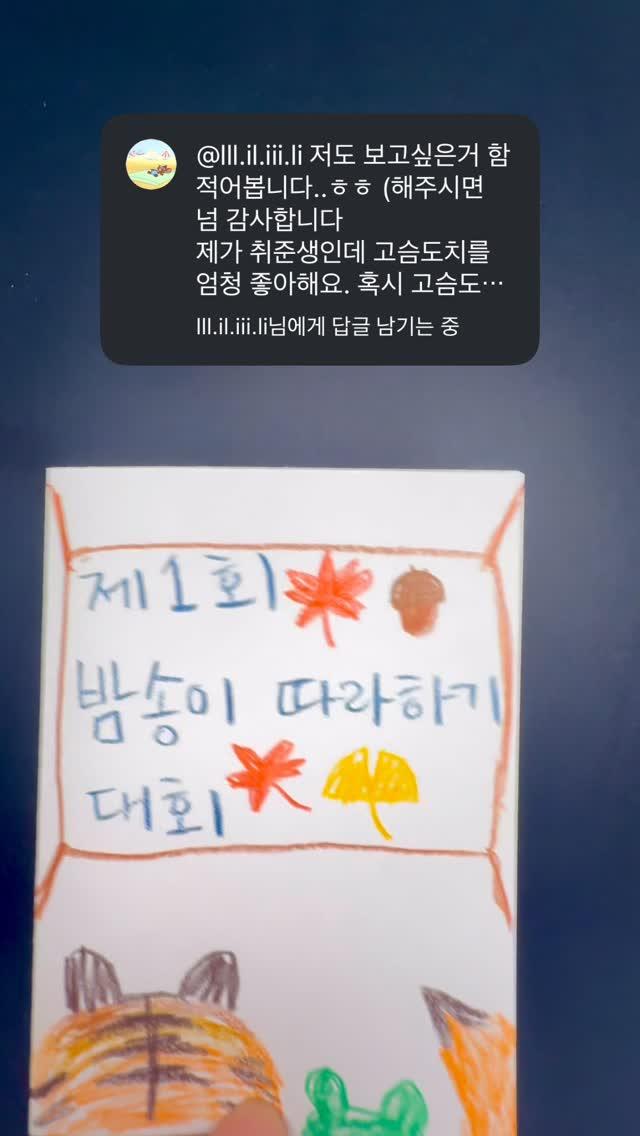 @lll.il.iii.li 저도 보고싶은거 함
적어봅니다..ㅎㅎ (해주시면
넘 감사합니다
제가 취준생인데 고슴도치를
엄청 좋아해요. 혹시 고슴도…
lll.il.iii.li님에게 답글 남기는 중
제1회
밤송이 따라하기
대회